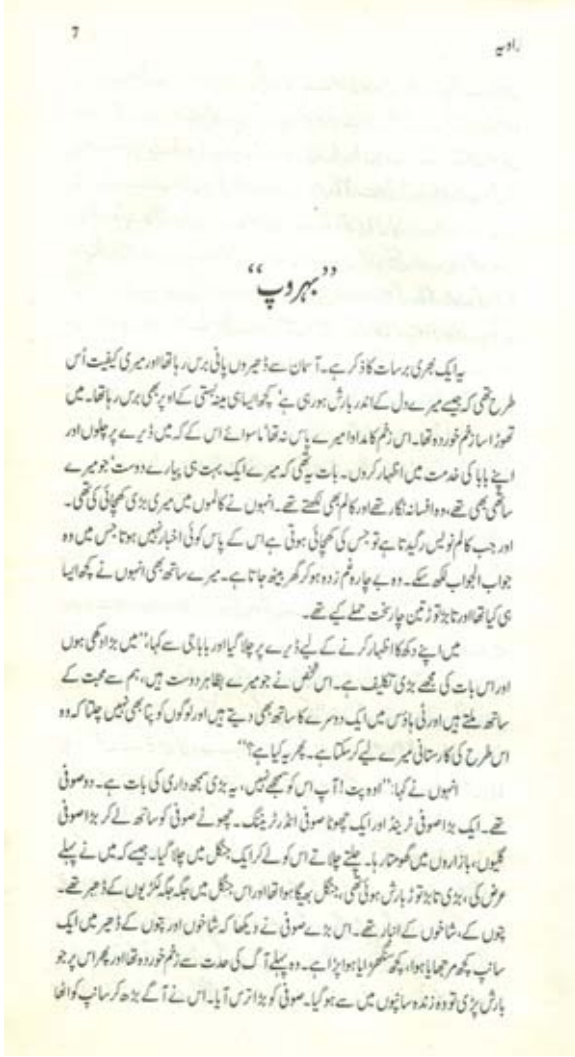 زاویہ
7
”بہروپ“
یہ ایک بھری برسات کا ذکر ہے۔ آسمان سے ڈھیروں پانی برس رہا تھا اور میری کیفیت اُس
طرح تھی کہ جیسے میرے دل کے اندر بارش ہو رہی ہے‘ کچھ ایسا ہی مینہ بستی کے اوپر بھی برس رہا تھا۔ میں
تھوڑا سا زخم خوردہ تھا۔ اس زخم کا مداوا میرے پاس نہ تھا‘ ماسوائے اس کے کہ میں ڈیرے پر چلوں اور
اپنے بابا کی خدمت میں اظہار کروں۔ بات یہ تھی کہ میرے ایک بہت ہی پیارے دوست‘ جو میرے
ساتھی بھی تھے، وہ افسانہ نگار تھے اور کالم بھی لکھتے تھے۔ انہوں نے کالموں میں میری بڑی کھچائی کی تھی۔
اور جب کالم نویس رگیدتا ہے تو جس کی کھچائی ہوتی ہے اس کے پاس کوئی اخبار نہیں ہوتا جس میں وہ
جواب الجواب لکھ سکے۔ وہ بے چارہ غم زدہ ہو کر گھر بیٹھ جاتا ہے۔ میرے ساتھ بھی انہوں نے کچھ ایسا
ہی کیا تھا اور تابڑ توڑ تین چار سخت حملے کیے تھے۔
میں اپنے دکھ کا اظہار کرنے کے لیے ڈیرے پر چلا گیا اور بابا جی سے کہا، ”میں بڑا دکھی ہوں
اور اس بات کی مجھے بڑی تکلیف ہے۔ اس شخص نے جو میرے بظاہر دوست ہیں، ہم سے محبت کے
ساتھ ملتے ہیں اور ٹی ہاؤس میں ایک دوسرے کا ساتھ بھی دیتے ہیں اور لوگوں کو پتا بھی نہیں چلتا کہ وہ
اس طرح کی کارستانی میرے لیے کر سکتا ہے۔ پھر یہ کیا ہے؟“
انہوں نے کہا: ”اوہ پت! آپ اس کو سمجھے نہیں، یہ بڑی سمجھ داری کی بات ہے۔ دو صوفی
تھے۔ ایک بڑا صوفی ٹرینڈ اور ایک چھوٹا صوفی انڈر ٹریننگ۔ چھوٹے صوفی کو ساتھ لے کر بڑا صوفی
گلیوں، بازاروں میں گھومتا رہا۔ چلتے چلاتے اس کو لے کر ایک جنگل میں چلا گیا۔ جیسے کہ میں نے پہلے
عرض کی، بڑی تابڑ توڑ بارش ہوئی تھی، جنگل بھیگا ہوا تھا اور اس جنگل میں جگہ جگہ لکڑیوں کے ڈھیر تھے۔
پتوں کے، شاخوں کے انبار تھے۔ اس بڑے صوفی نے دیکھا کہ شاخوں اور پتوں کے ڈھیر میں ایک
سانپ کچھ مرجھایا ہوا، کچھ سنگھڑایا ہوا پڑا ہے۔ وہ پہلے آگ کی حدت سے زخم خوردہ تھا اور پھر اس پر جو
بارش پڑی تو وہ زندہ سانپوں میں سے ہو گیا۔ صوفی کو بڑا ترس آیا۔ اس نے آگے بڑھ کر سانپ کو اٹھا